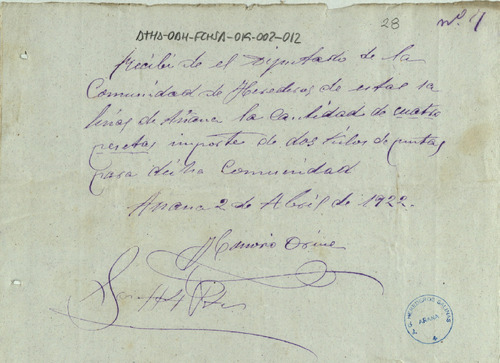 DTHA-ODH-FCHSA-OR-002-012
28
nº 4
Recibi de el Diputado de la
Comunidad de Herederos de estas sa
linas de Añana la cantidad de cuatro
pesetas importe de dos kilos de puntas
para dicha Comunidad
Añana 2 de Abril de 1922.
Honorio
Son #4 Pts